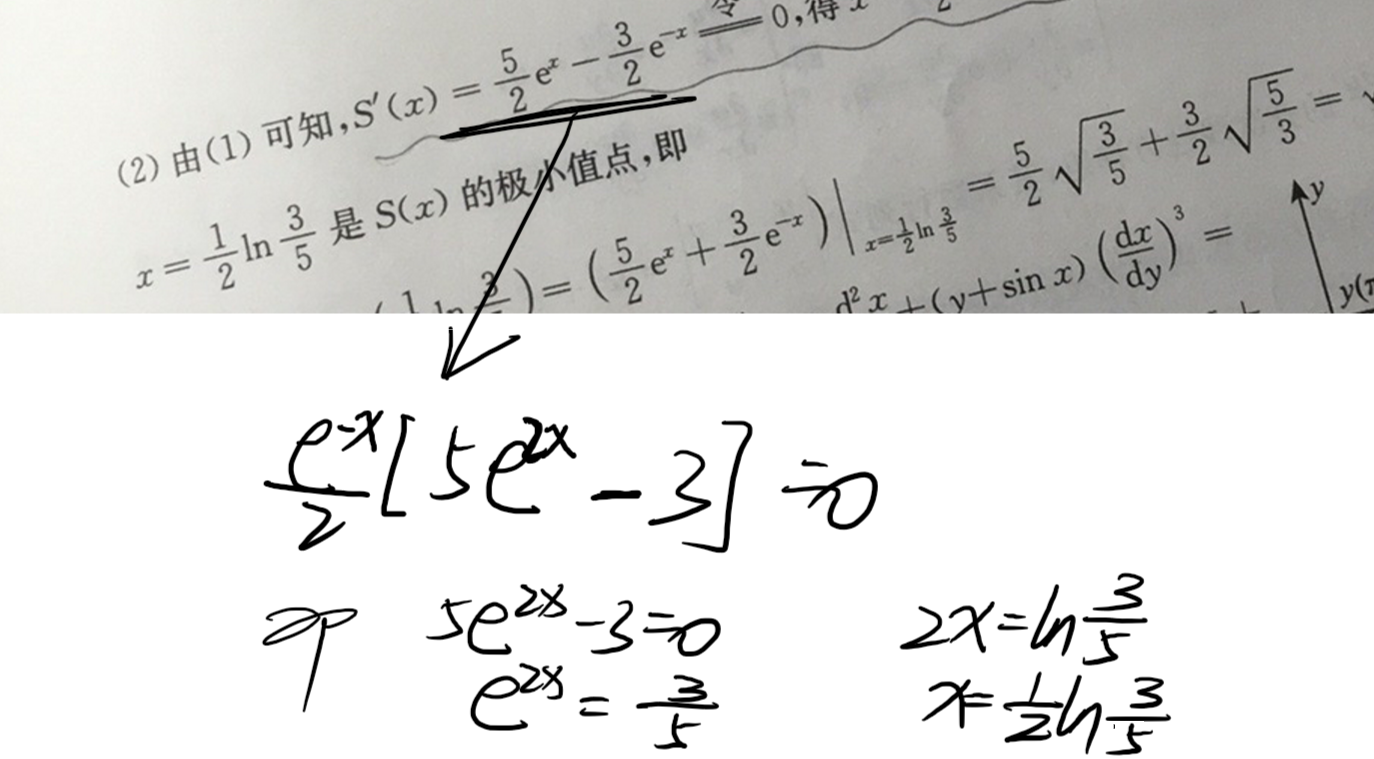 (2) 由(1)可知,S′(x) = 5/2 eˣ − 3/2 e⁻ˣ ≝(令) 0,得 x
x = 1/2 ln 3/5 是 S(x) 的极小值点,即
) = (5/2 eˣ + 3/2 e⁻ˣ)|ₓ₌½ ln 3/5 = 5/2 √(3/5) + 3/2 √(5/3) =
d²x + (y + sin x)(dx/dy)³ =
y
y(π
e⁻ˣ/2 [5e²ˣ − 3] = 0
即 5e²ˣ − 3 = 0
e²ˣ = 3/5
2x = ln 3/5
x = 1/2 ln 3/5